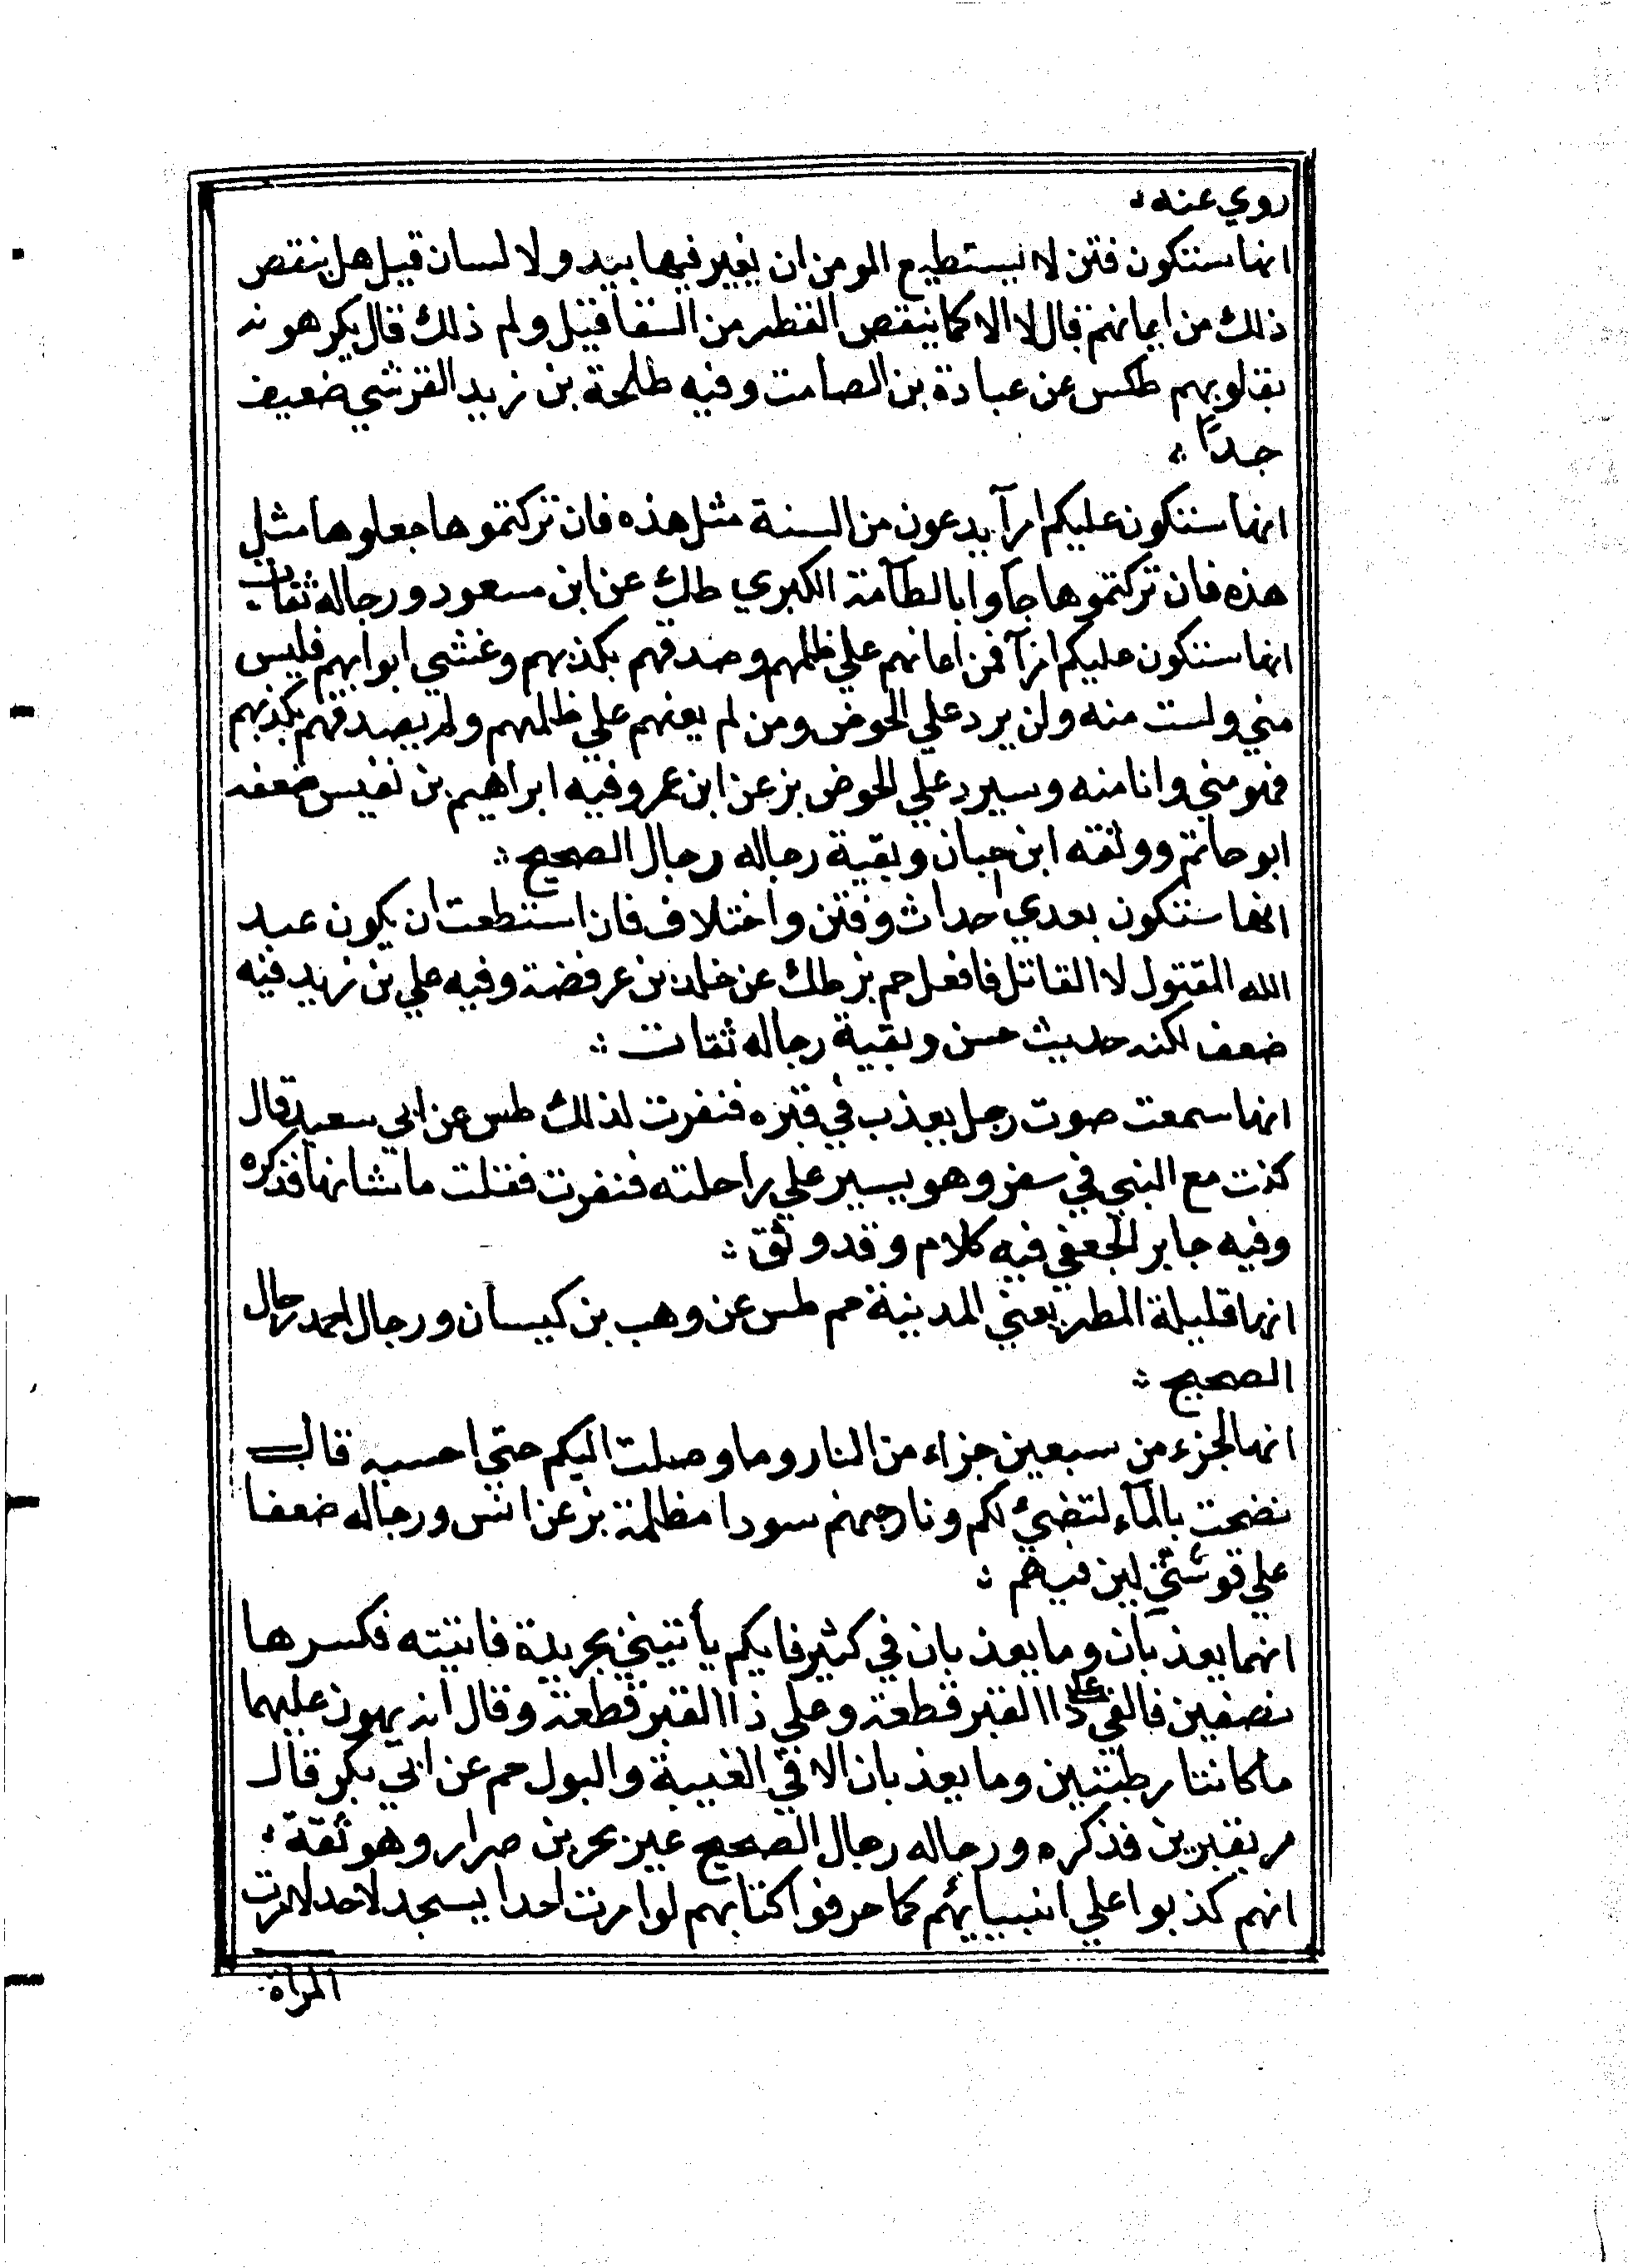 روي عنه ؞
انها ستكون فتن لا يستطيع المومن ان يغير فيها بيد ولا لسان قيل هل ينقص
ذلك من ايمانهم قال لا الا كما ينقص القطر من السقا قيل ولم ذلك قال يكرهونه
بقلوبهم طكس عن عبادة بن الصامت وفيه طلحة بن زيد القرشي ضعيف
جداً ؞
انها ستكون عليكم امرآ يدعون من السنة مثل هذه فان تركتموها جعلوها مثل
هذه فان تركتموها جآوا بالطآمة الكبري طك عن ابن مسعود ورجاله ثقات
انها ستكون عليكم امرآ فمن اعانهم علي ظلمهم وصدقهم بكذبهم وغشي ابوابهم فليس
مني ولست منه ولن يرد علي الحوض ومن لم يعنهم علي ظلمهم ولم يصدقهم بكذبهم
فهو مني وانا منه وسيرد علي الحوض بز عن ابن عمر وفيه ابراهيم بن نفيس ضعفه
ابو حاتم ووثقه ابن حبان وبقية رجاله رجال الصحيح ؞
انها ستكون بعدي احداث وفتن واختلاف فان استطعت ان يكون عبد
الله المقتول لا القاتل فافعل حم بز طك عن خلد بن عرفضة وفيه علي بن زيد فيه
ضعف لكنه حديث حسن وبقية رجاله ثقات ؞
انها سمعت صوت رجل يعذب في قبره فنفرت لذلك طس عن ابي سعيد قال
كنت مع النبي في سفر وهو يسير علي راحلته فنفرت فقلت ما شانها فذكره
وفيه جابر الجعفي فيه كلام وقد وثق ؞
انها قليلة المطر يعني المدينة حم طس عن وهب بن كيسان ورجال احمد رجال
الصحيح ؞
انها لجزء من سبعين جزاء من النار وما وصلت اليكم حتي احسبه قال
نضحت بالمآء لتضيئ لكم ونار جهنم سودا مظلمة بز عن انس ورجاله ضعفا
علي توثيق لين فيهم ؞
انهما يعذبان وما يعذبان في كثير فايكم يأتيني بجريدة فاتيته فكسرها
نصفين فالقي علي ذا القبر قطعة وعلي ذا القبر قطعة وقال انه يهون عليهما
ما كانتا رطبتين وما يعذبان الا في الغيبة والبول حم عن ابي بكر قال
مر بقبرين فذكره ورجاله رجال الصحيح غير بحر بن مرار وهو ثقة ؞
انهم كذبوا علي انبيايهم كما حرفوا كتابهم لو امرت احدا يسجد لاحد لامرت
المراة